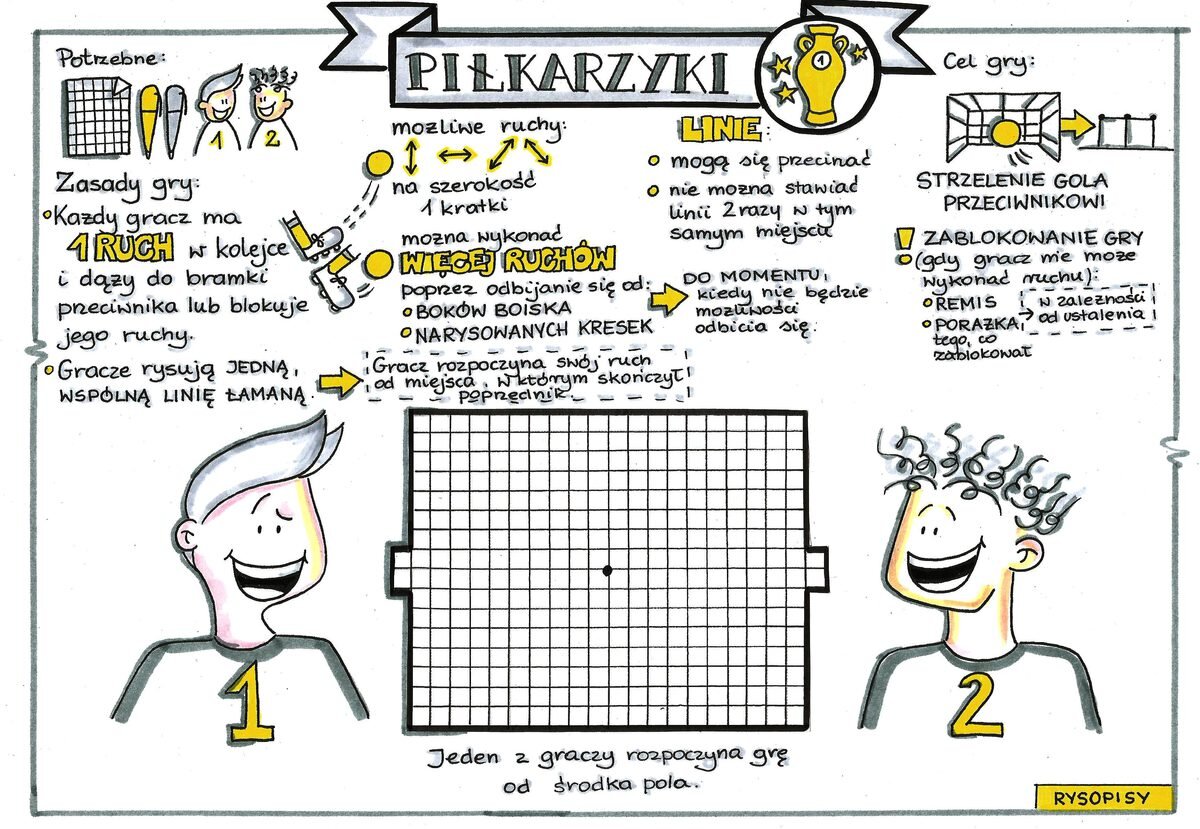 PIŁKARZYKI
1
Potrzebne:
1 2
Zasady gry:
Każdy gracz ma
1 RUCH w kolejce
i dąży do bramki
przeciwnika lub blokuje
jego ruchy.
Gracze rysują JEDNĄ,
WSPÓLNĄ LINIĘ ŁAMANĄ.
Gracz rozpoczyna swój ruch
od miejsca, w którym skończył
poprzednik.
możliwe ruchy:
na szerokość
1 kratki
można wykonać
WIĘCEJ RUCHÓW
poprzez odbijanie się od:
BOKÓW BOISKA
NARYSOWANYCH KRESEK
DO MOMENTU,
kiedy nie będzie
możliwości
odbicia się.
LINIE:
mogą się przecinać
nie można stawiać
linii 2 razy w tym
samym miejscu
Cel gry:
STRZELENIE GOLA
PRZECIWNIKOWI
! ZABLOKOWANIE GRY
(gdy gracz nie może
wykonać ruchu):
REMIS
PORAŻKA,
tego, co
zablokował
w zależności
od ustalenia
1
2
Jeden z graczy rozpoczyna grę
od środka pola.
RYSOPISY